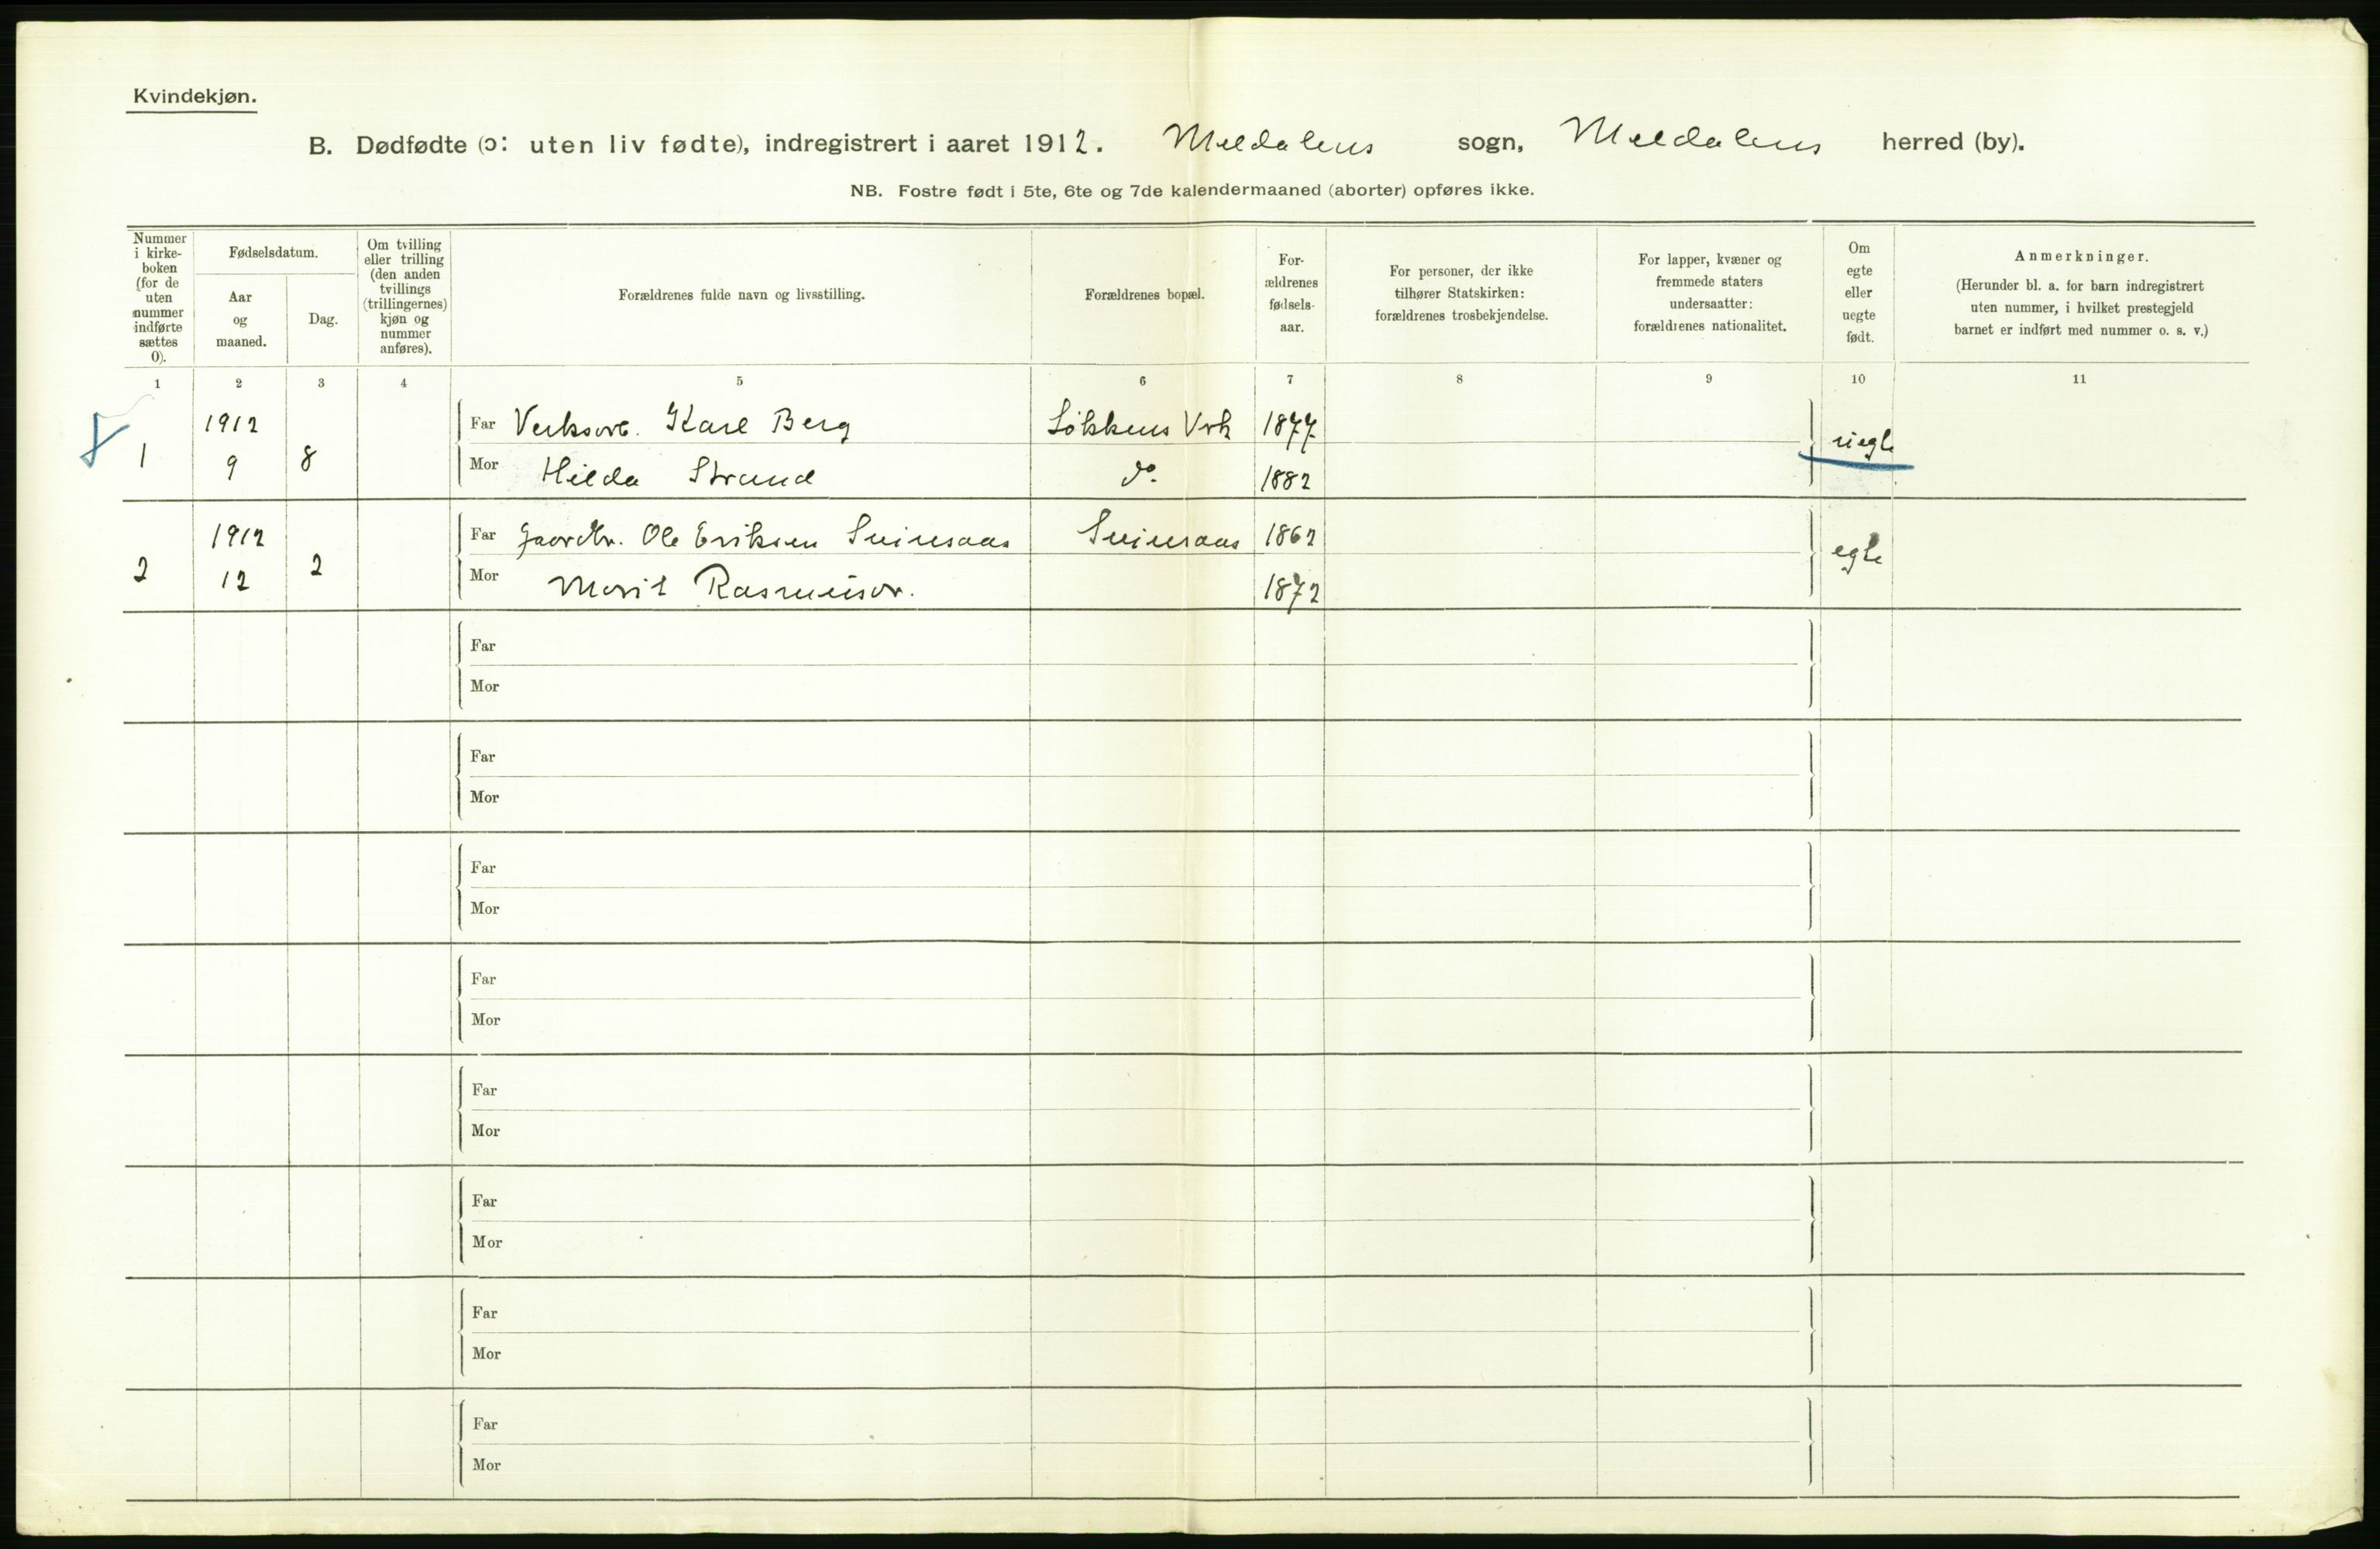 Kvindekjøn.
B. Dødfødte (ɔ: uten liv fødte), indregistrert i aaret 1912. Meldalens sogn, Meldalens herred (by).
NB. Fostre født i 5te, 6te og 7de kalendermaaned (aborter) opføres ikke.
Nummer i kirke- boken (for de uten nummer indførte sættes 0).
Fødselsdatum.
Aar og maaned.
Dag.
Om tvilling eller trilling (den anden tvillings (trillingernes) kjøn og nummer anføres).
Forældrenes fulde navn og livsstilling.
Forældrenes bopæl.
For- ældrenes fødsels- aar.
For personer, der ikke tilhører Statskirken: forældrenes trosbekjendelse.
For lapper, kvæner og fremmede staters undersaatter: forældrenes nationalitet.
Om egte eller uegte født.
Anmerkninger.
(Herunder bl. a. for barn indregistrert uten nummer, i hvilket prestegjeld barnet er indført med nummer o. s. v.)
1 2 3 4 5 6 7 8 9 10 11
1912 Far Verksarb. Karl Berg Løkkens Vrk 1877 uegte
1 9 8 Mor Hilda Strand do. 1882
1912 Far Gaardbr. Ole Eriksen Svinsaas Svinsaas 1862 egte
2 12 2 Mor Marit Rasmusdr. 1872
Far
Mor
Far
Mor
Far
Mor
Far
Mor
Far
Mor
Far
Mor
Far
Mor
Far
Mor